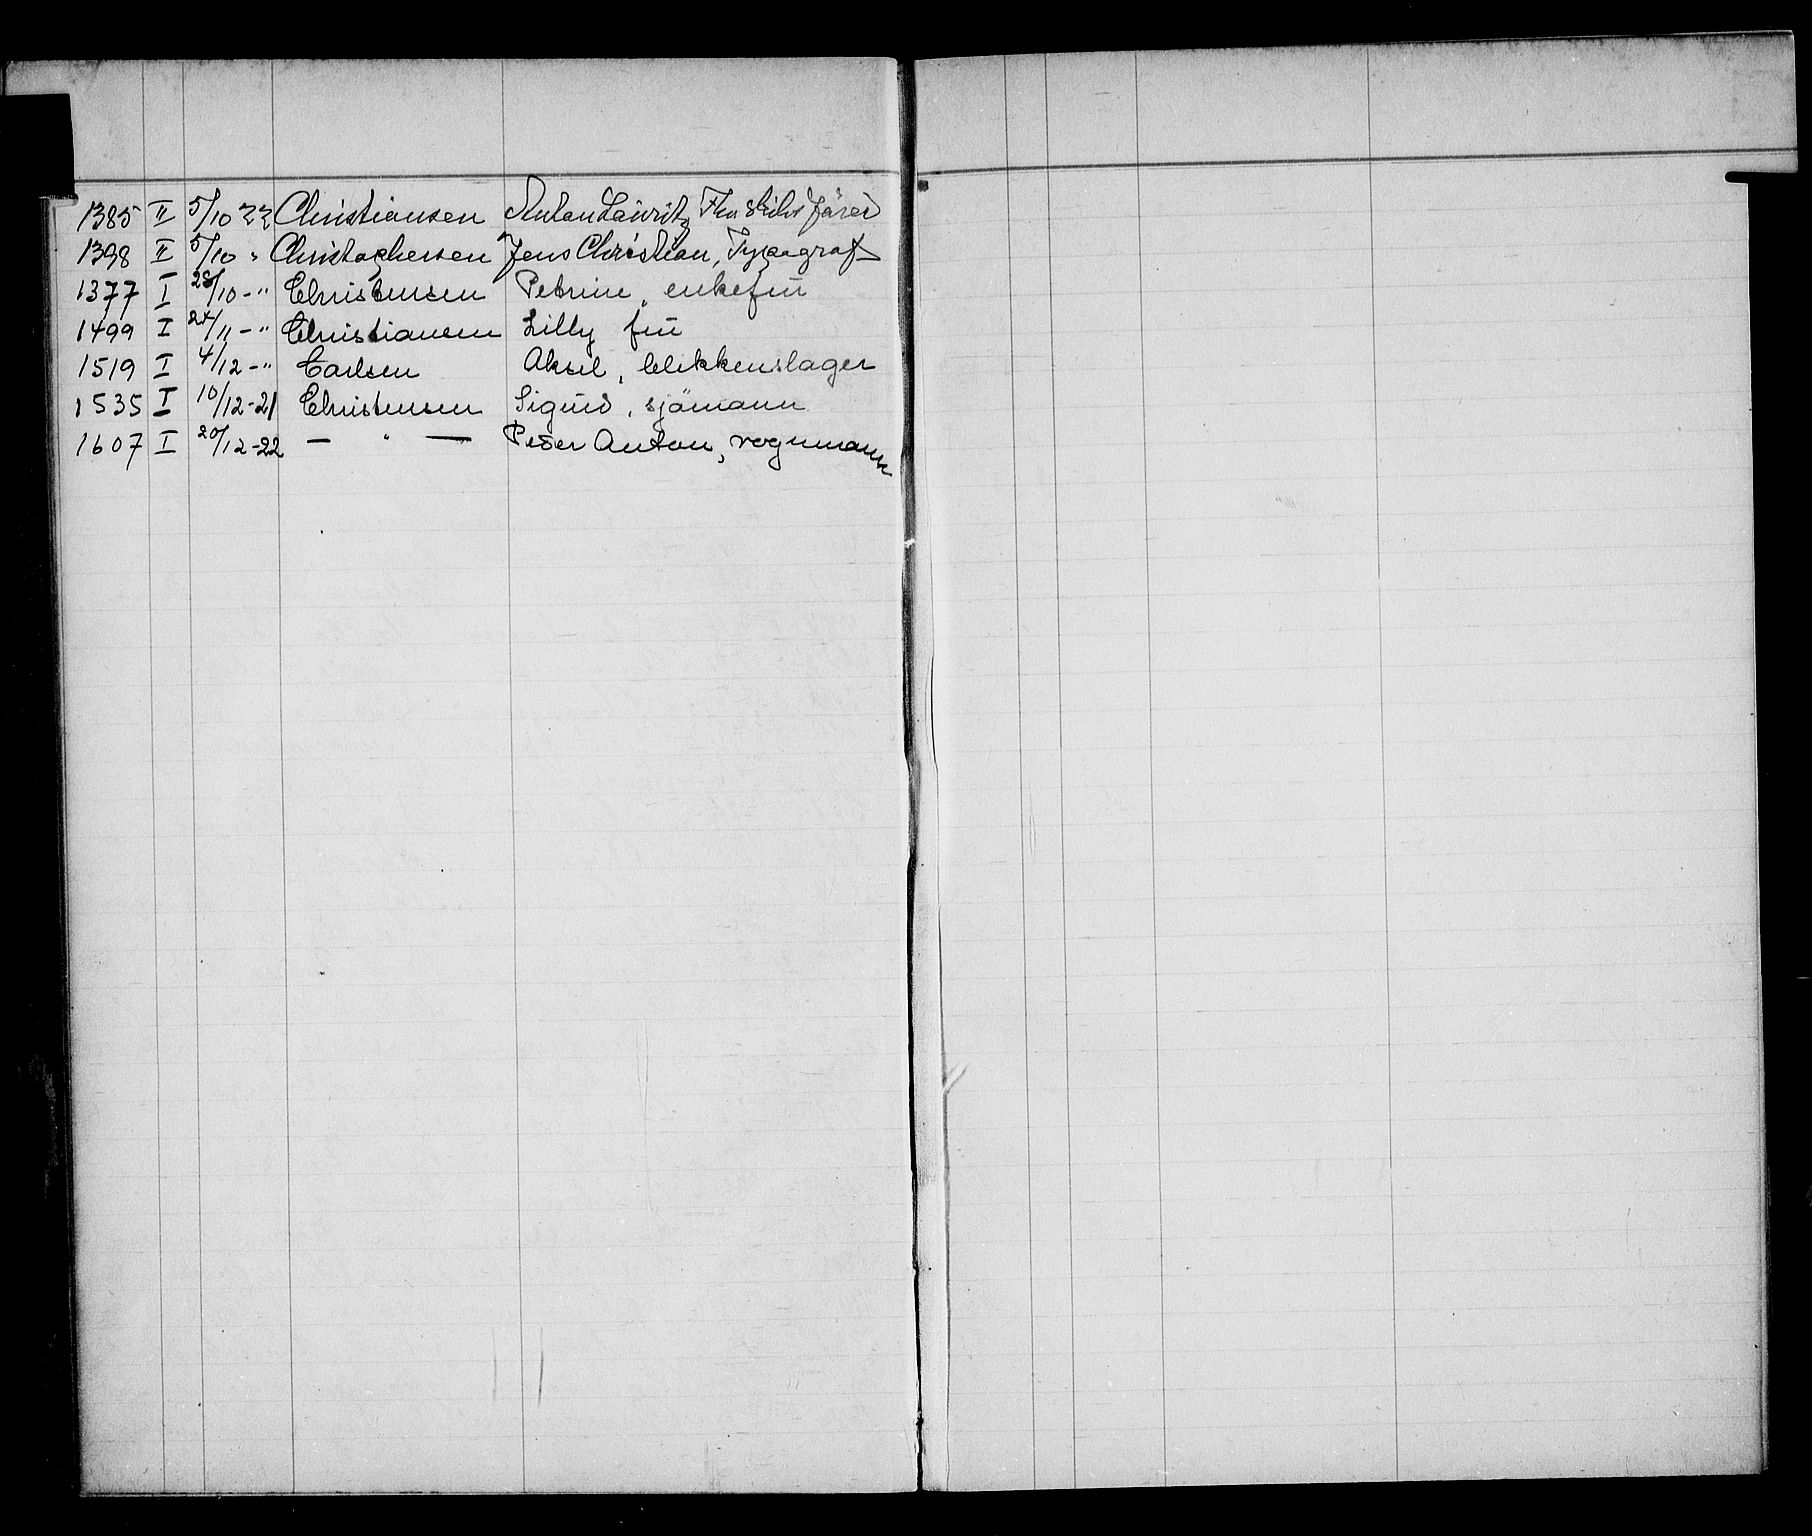 1385 II 5/10 22 Christiansen Anton Lauritz
1398 II 5/10 " Christophersen Jens Christian, Typograf
1377 I 28/10 - " Christensen Petrine, enkefrü
1499 I /11 - " Christiansen Lilly frü
1519 I 4/12 - " Carlsen Aksel, blikkenslager
1535 I 10/12-21 Christensen Sigurd, sjømann
1607 I 20/12-22 — " — Peder Anton, vognmann